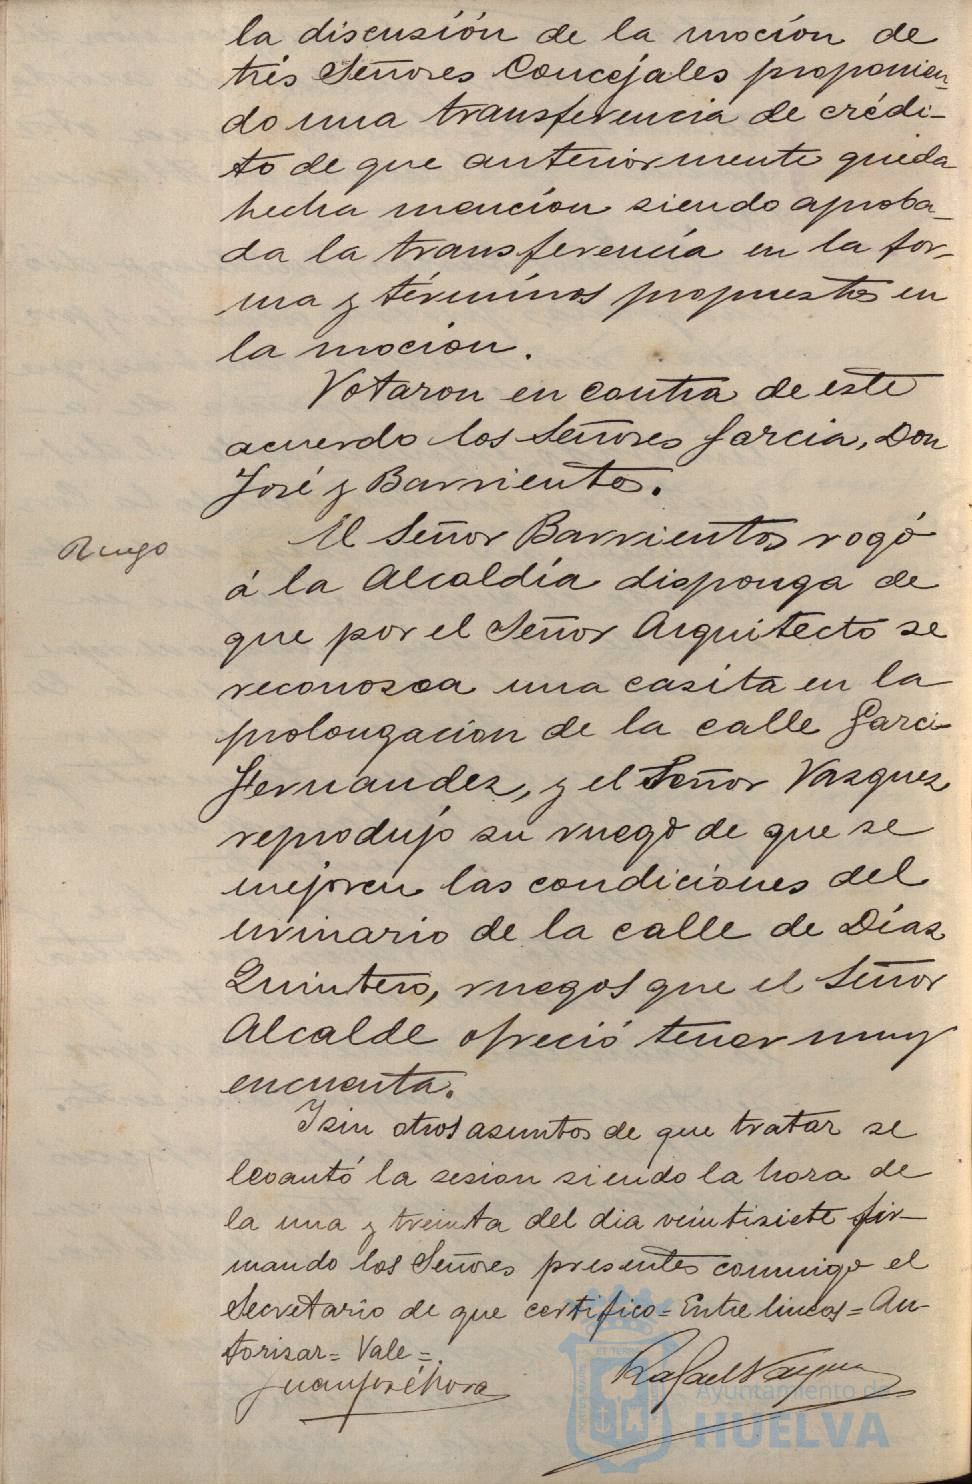 la discusión de la moción de
tres Señores Concejales proponien-
do una transferencia de crédi-
to de que anteriormente queda
hecha mencion siendo aproba-
da la transferencia en la for-
ma y términos propuestos en
la mocion.
Votaron en contra de este
acuerdo los Señores Garcia, Don
José y Barrientos.
Ruego
El Señor Barrientos rogó
á la Alcaldía disponga de
que por el Señor Arquitecto se
reconozca una casita en la
prolongacion de la calle Garci
Fernandez, y el Señor Vazquez
reprodujo su ruego de que se
mejoren las condiciones del
urinario de la calle de Díaz
Quintero, ruegos que el Señor
Alcalde ofreció tener muy
encuenta.
Y sin otros asuntos de que tratar se
levantó la sesion siendo la hora de
la una y treinta del dia veintisiete fir-
mando los Señores presentes conmigo el
Secretario de que certifico = Entre lineas = Au-
torizar = Vale =.
Juan José Mora
Rafael Vazquez
Ayuntamiento de
HUELVA